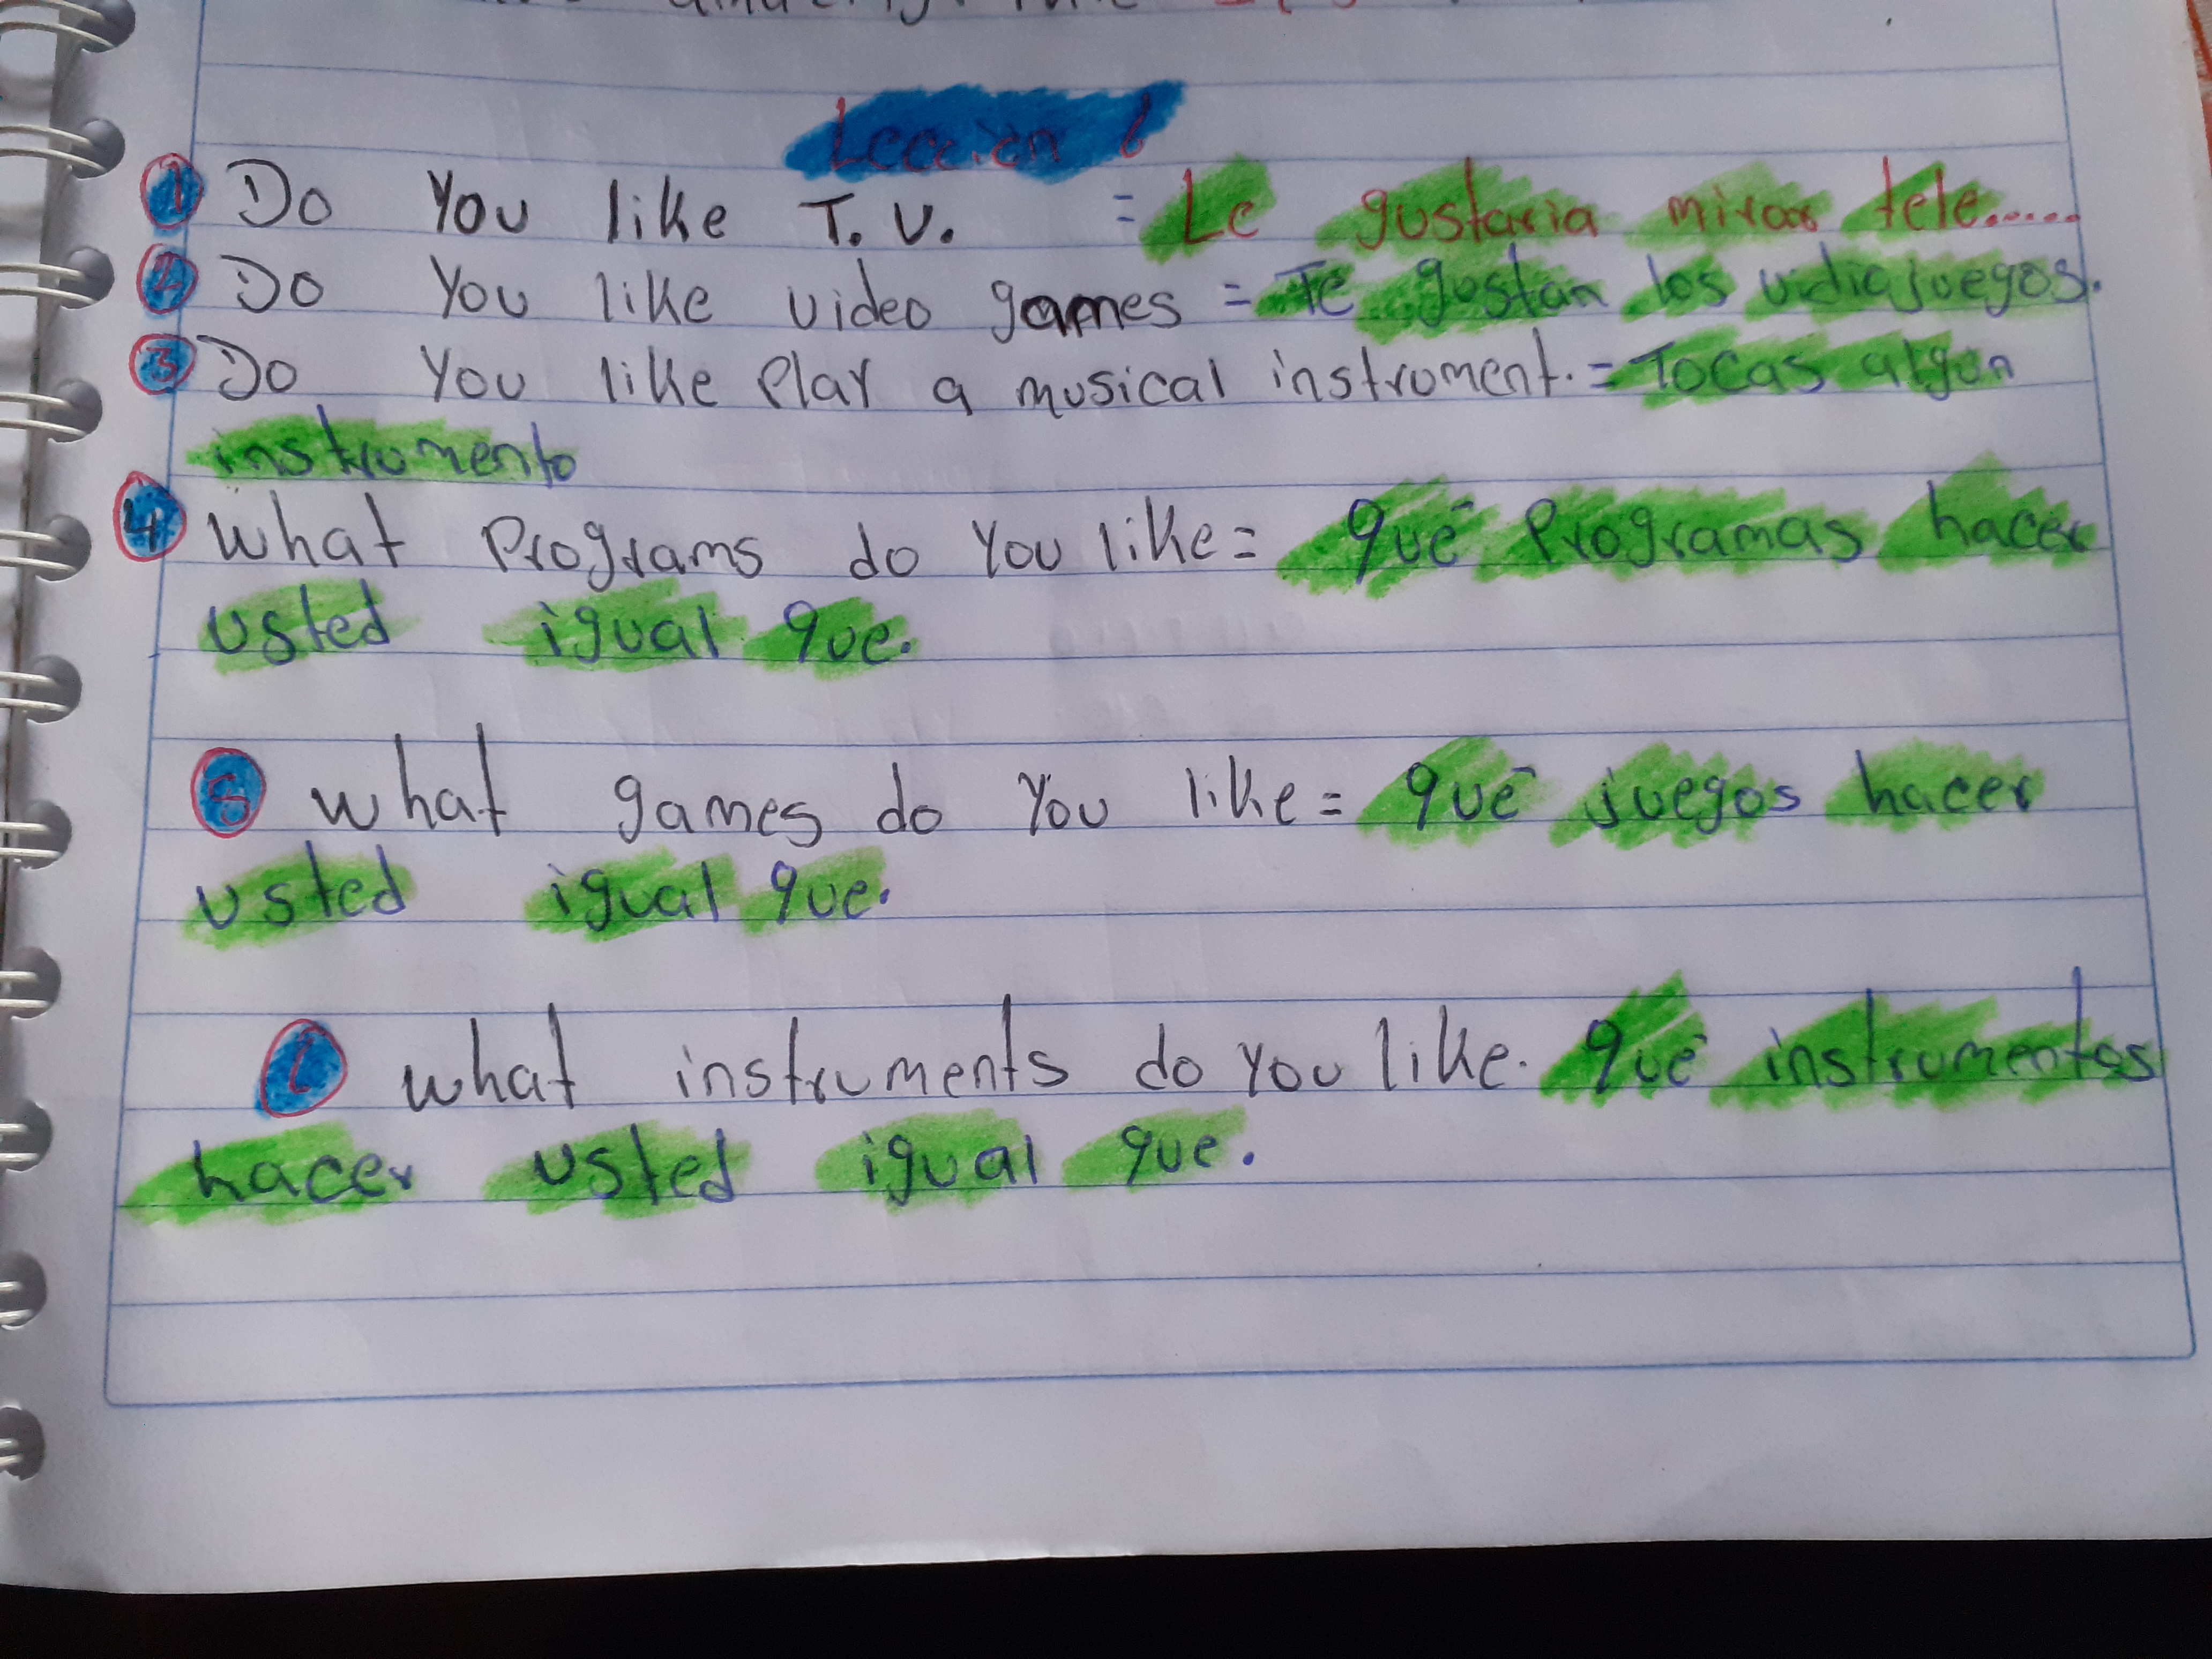 Lección 6
1 Do You like T.V. = Le gustaria mirar tele.....
2 Do You like video games = Te gustan los vidiajuegos.
3 Do You like Play a musical instroment. = Tocas algun
instrumento
4 What Programs do You like = qué Programas hacer
usted igual que.
5 What games do You like = qué juegos hacer
usted igual que.
6 What instruments do You like. qué instrumentos
hacer usted igual que.